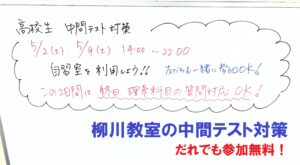 高校生 中間テスト対策
5/2(土)・5/9(土) 14:00 ～ 22:00
自習室を利用しよう!! 友だちも一緒に参加OK!
この2日間は 終日 理系科目の質問対応 OK!
柳川教室の中間テスト対策
だれでも参加無料！